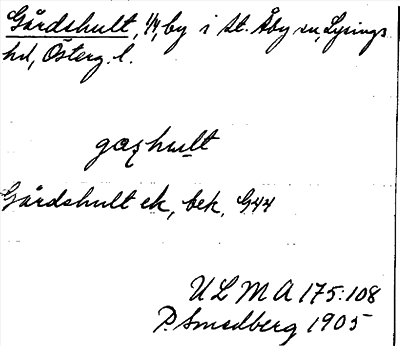 Gårdshult, 1/4, by i St. Åby sn, Lysings
hd, Österg. l.
gaʂhult
Gårdshult ek, bek. G44
ULMA 175:108
P. Smedberg 1905